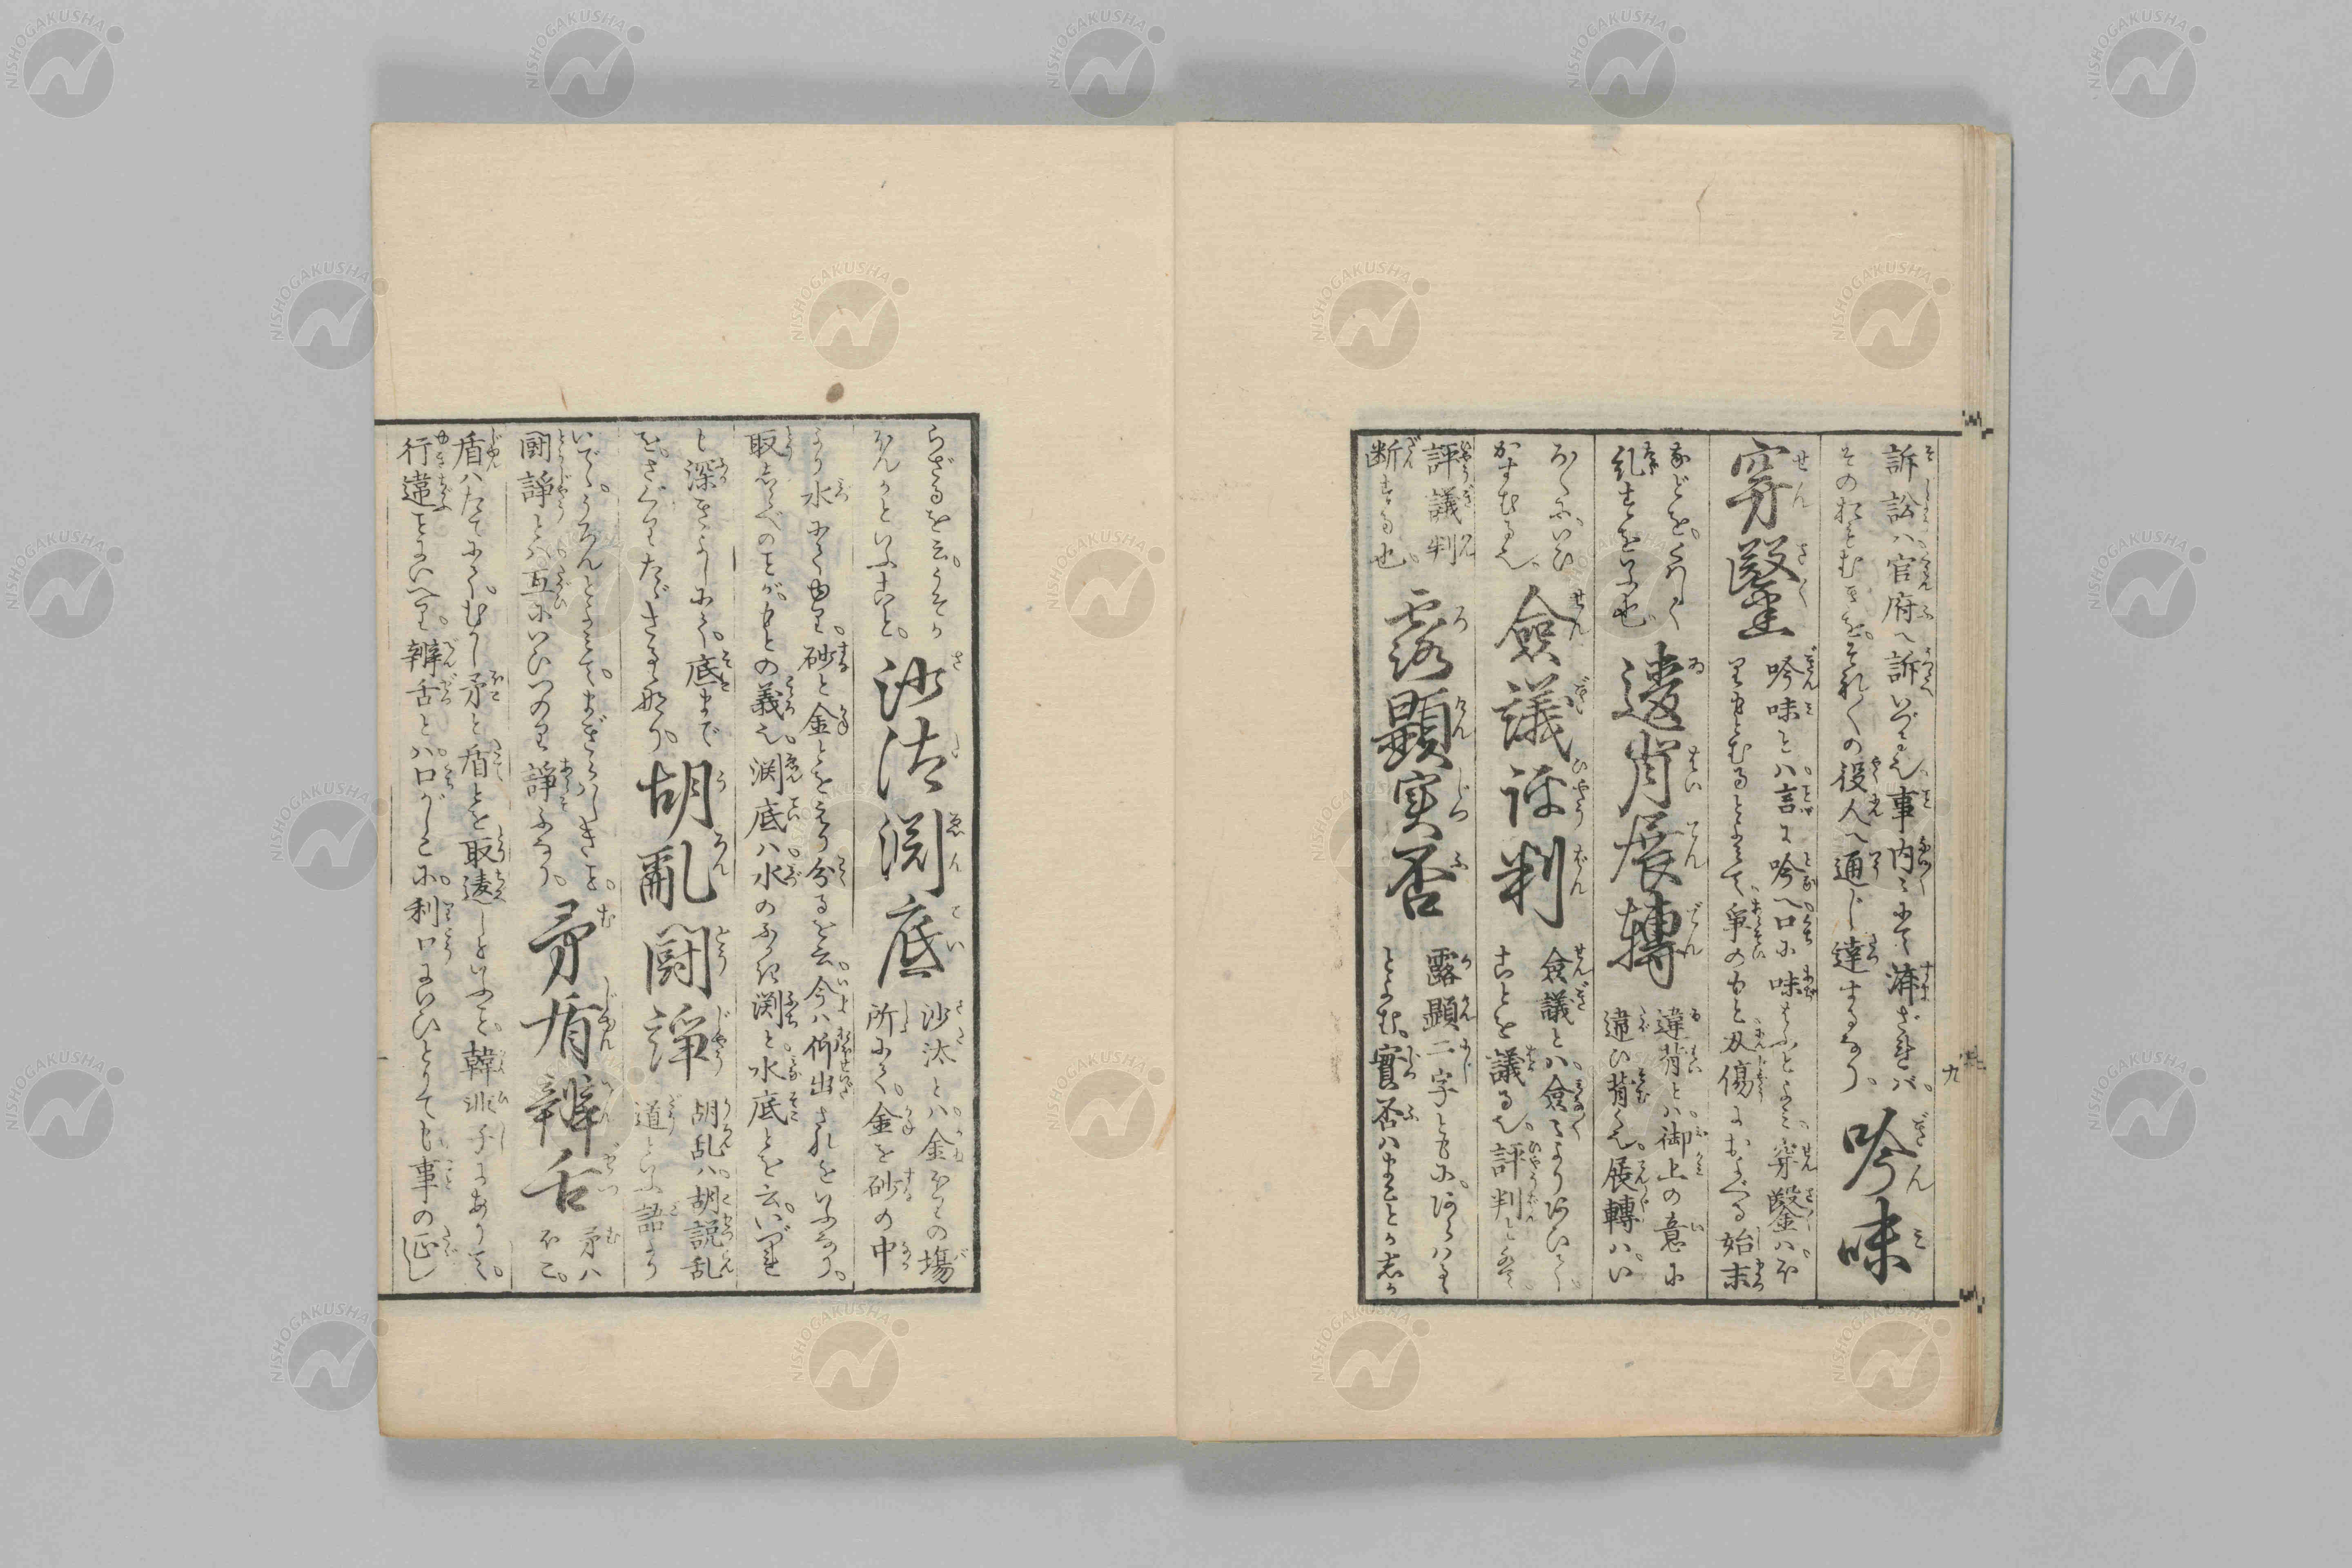 訴訟ハ官府へ訴いづる也事内々にて濟ざれバ
そのおもむきをそれ〳〵の役人へ通じ達するなり
吟味
穿鑿
吟味とハ言に吟へ口に味ふとよみ穿鑿ハほ
りもとむるとよみて争のもと刄傷におよべる始末
などをくはしく
糺すをいふ也
違背展轉
違背とハ御上の意に
違ひ背く也展轉ハい
ろ〳〵にいひ
かすむる也
僉議評判
僉議とハ僉々よりあひて
ことを議る也評判とハ
評議判
断する也
露顯実否
露顯二字ともにあらハる
とよむ實否ハまことか志か
らざるを云うそか
ほんかといふこと
沙汰淵底
沙汰とハ金ほりの塲
所にて金を砂の中
より水にてゆり砂と金とをえり分るを云今ハ仰出されをいふなり
取志らべのことがもとの義也渕底ハ水のふかき渕と水底とを云いづれ
も深きよしにて底まで
をさぐりたゞきる也
胡亂闘諍
胡乱ハ胡説乱
道といふ語より
いでゝうろんとよみてまぎらハしきこと
闘諍とハ互にいひつのり諍ふなり
矛盾辨舌
矛ハ
ほこ
盾ハたてにてむかし矛と盾とを取違しといふこと韓非子にありて
行違ことにいへり辨舌とハ口がしこに利口にいひとりても事の正し
九
NISHOGAKUSHA